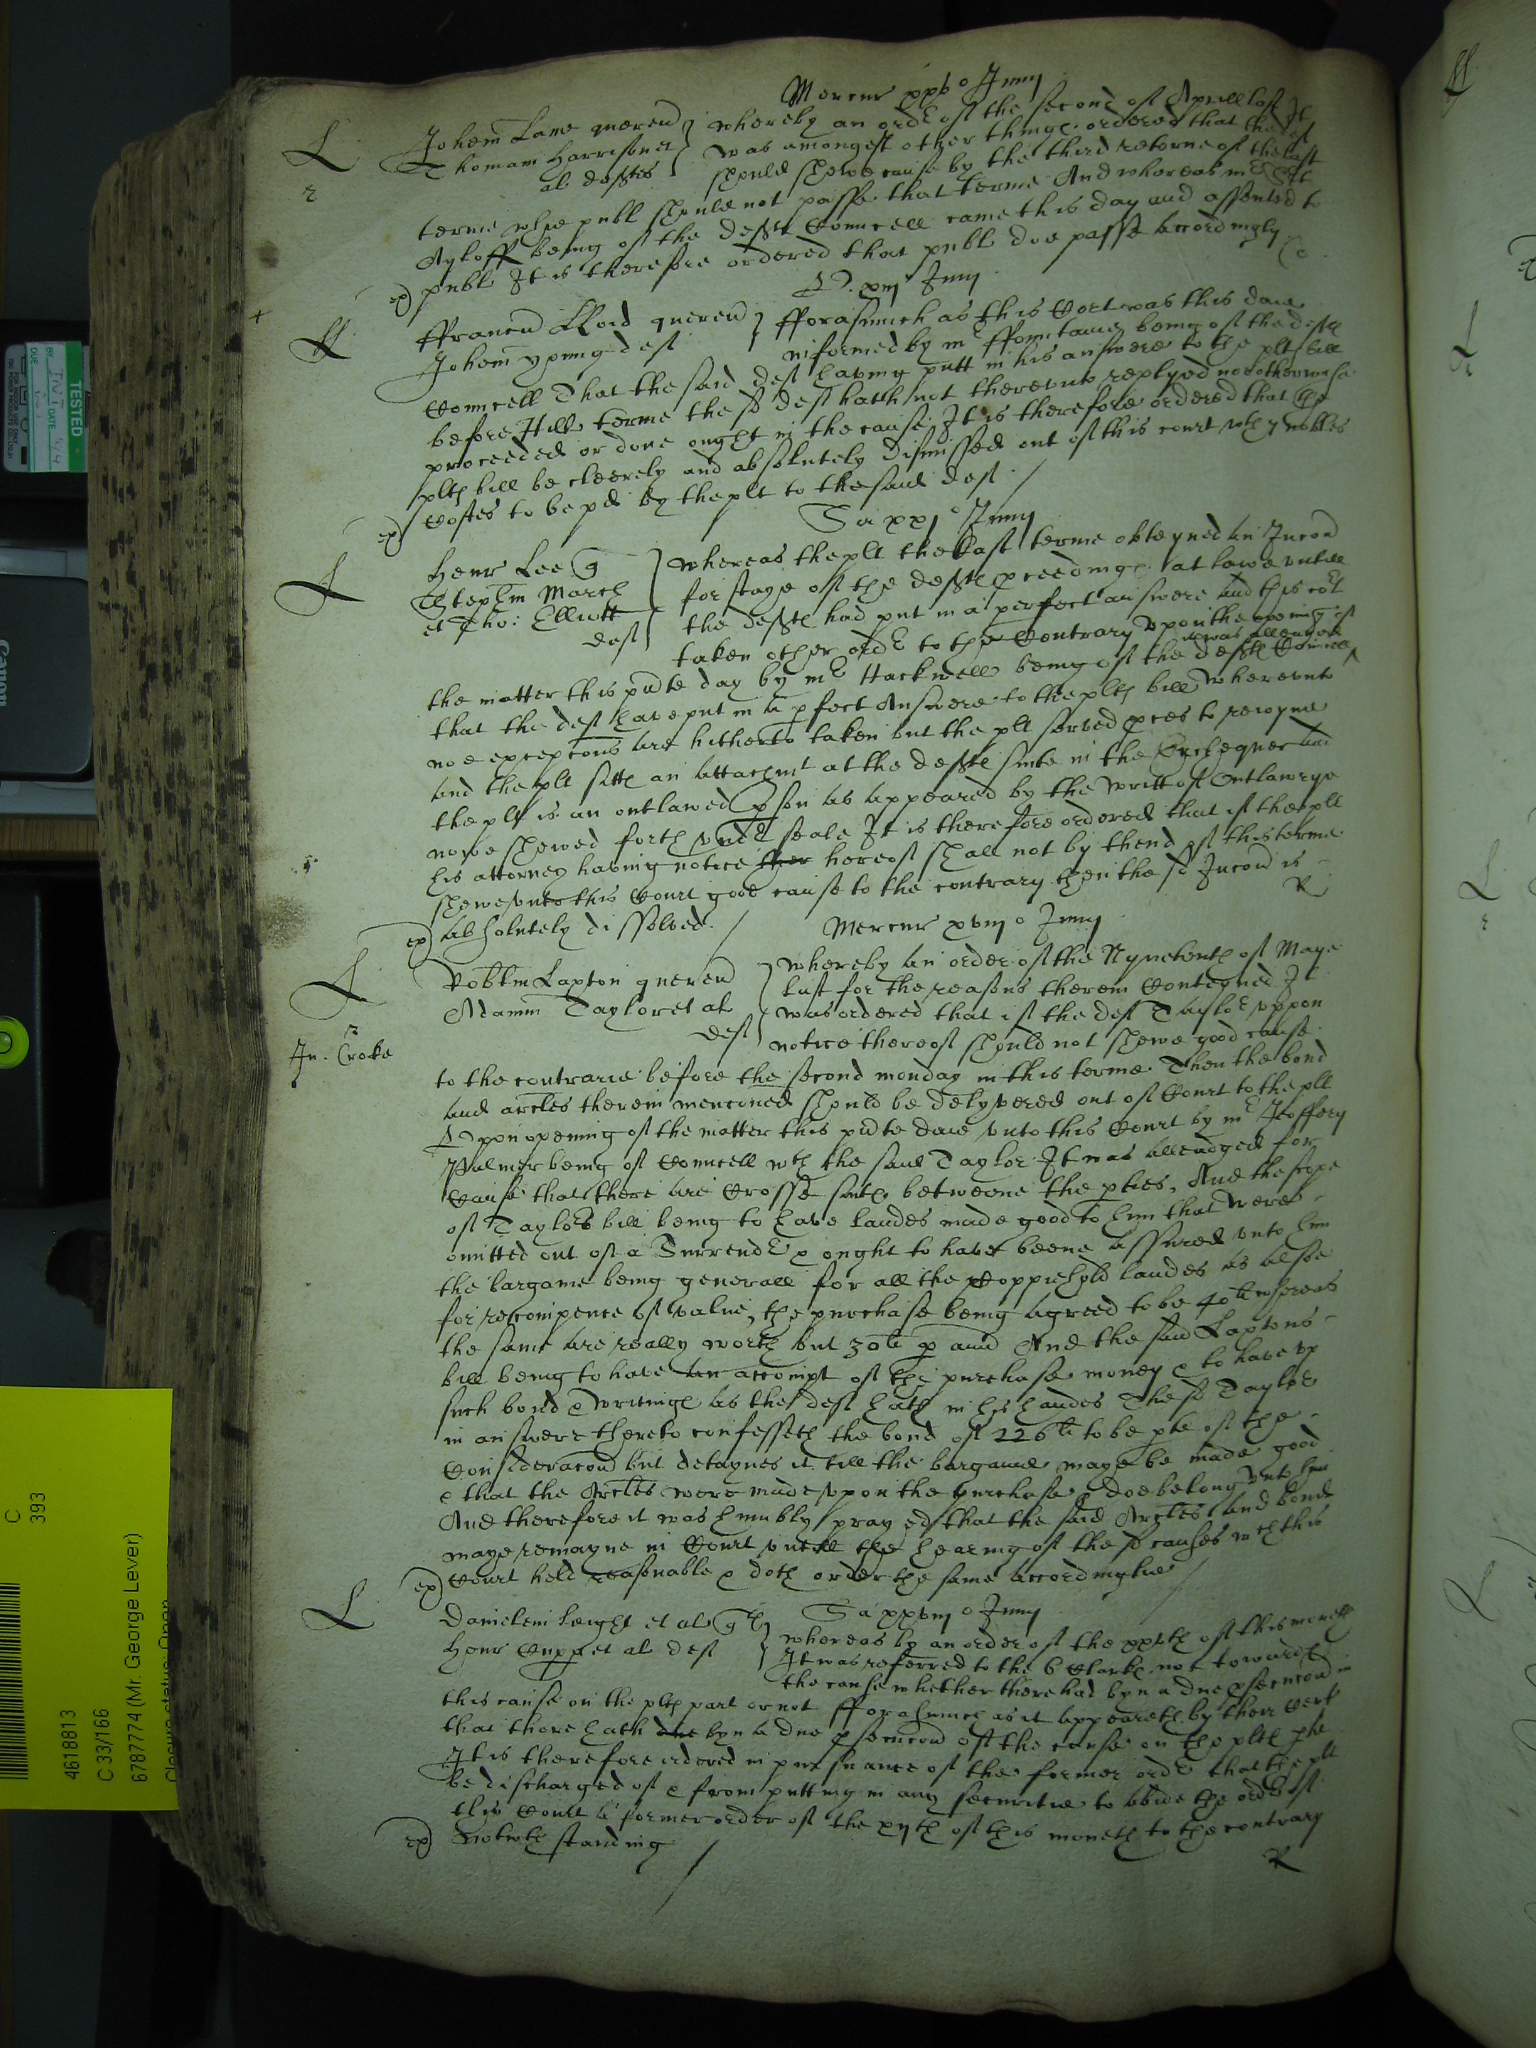 Mercur xxvº Junij
L Johem Lane querend } whereby an ordr of the second of Aprill last It
r Thomam Harrison et } was amongest other things ordered that the def
al deftes } should shewe cause by the third returne of the last
terme whie publ should not passe that terme And whereas mr
Ayloff being of the defts Councell came this day and assented to
ex) publ It is therefore ordered that publ doe passe accordingly
xiijº Junij
ffrancu Lloid querend } fforasmuch as this Cort was this daie
Johem yonng def informed by mr ffountaine being of the defts
Councell That the said def having putt in his answere to the plts bill
before Hill terme the sd def hath not thereunto replyed nor otherwise
proceeded or done ought in the cause, It is therefore ordered that the
plts bill be cleerely and absolutely dismissed out of this court wth nobles
ex) Costes to be pd by the plt to the said def
Sa xxjº Junij
Henr Lee q } whereas the plt the last terme obteyned an Iniccon
Stephm March } for staye of the defts pceedings at lawe untill
et Tho: Elliott } the defts had put in a perfect answere and this cort
def } taken other ordr to the Contrary Upon the opening of
the matter this pnte day by mr Hackwell being of the defts Councell
it was alleaged
that the def have put in a pfect Answere to the plts bill whereunto
noe excepcons are hitherto taken but the plt served pces to reioyne
and the plt sitts an attachmt at the defts suite in the Exchequer and
the plt is an outlawed pson as appeared by the writt of Outlawrye
nowe shewed forth under seale It is therefore ordered that if the plt
his attorney having notice hereof shall not by thend of this terme
shewe unto this Court good cause to the contrary then the sd Iniccon is
ex) absolutely dissolved. R
Mercur xviijº Junij
Robtm Laxton querend } whereby an order of the Nynetenth of Maye
Adamm Taylor et al } last for the reasons therein Conteyned It
def } was ordered that if the def Taylor uppon
Jn. Croke notice thereof should not shewe good cause
to the contrarie before the second monday in this terme Then the bond
and arcles therein menconed should be delyvered out of Court to the plt
Upon opening of the matter this pnte daie unto this Court by mr Jeoffery
Palmer being of Councell wth the said Taylor It was alleadged for
Cause that there are Crosse suits betweene the pties, And the scope
of Taylors bill being to have landes made good to him that were
omitted out of a Surrendr & ought to have beene assured unto him
the bargaine being generall for all the Coppiehold landes as alsoe
for recompence of value, the purchase being agreed to be 40li whereas
the same are really worth but 30li p ann And the said Laxtons
bill being to have an accompt of the purchase money & to have up
such bond & writings as the def hath in his handes The sd Taylor
in answere thereto confesseth the bond of 226li to be pte of the
Consideracon but detaynes it till the bargaine maye be made good
& that the Arcles were made uppon the purchase & doe belong unto him
And therefore it was humbly prayed that the said Arcles and bond
maye remayne in Court untill the hearing of the sd causes wch this
ex) Court held reasonable & doth order the same accordinglie
Sa xxviijº Junij
L Danielem Leight et al qts } whereas by an order of the xxith of this moneth
Henr Cupp et al def } It was referred to the 6 Clarks not towards
the cause whether there had byn a due psecucon in
this cause on the plts part or not fforasmuch as it appeareth by their Cert
that there hath byn a due psecucon of the cause on the plts pte
It is therefore ordered in pursuance of the former ordr that the plt
be discharged of & from putting in any securitie to abide the ordr of
this Court a former order of the xijth of this moneth to the contrary
ex) Notwthstanding R
TESTED
BY INT DATE 4/4
DUE
Canon
C
393
4618813
C 33/166
6787774 (Mr. George Lever)
Closure status: Open